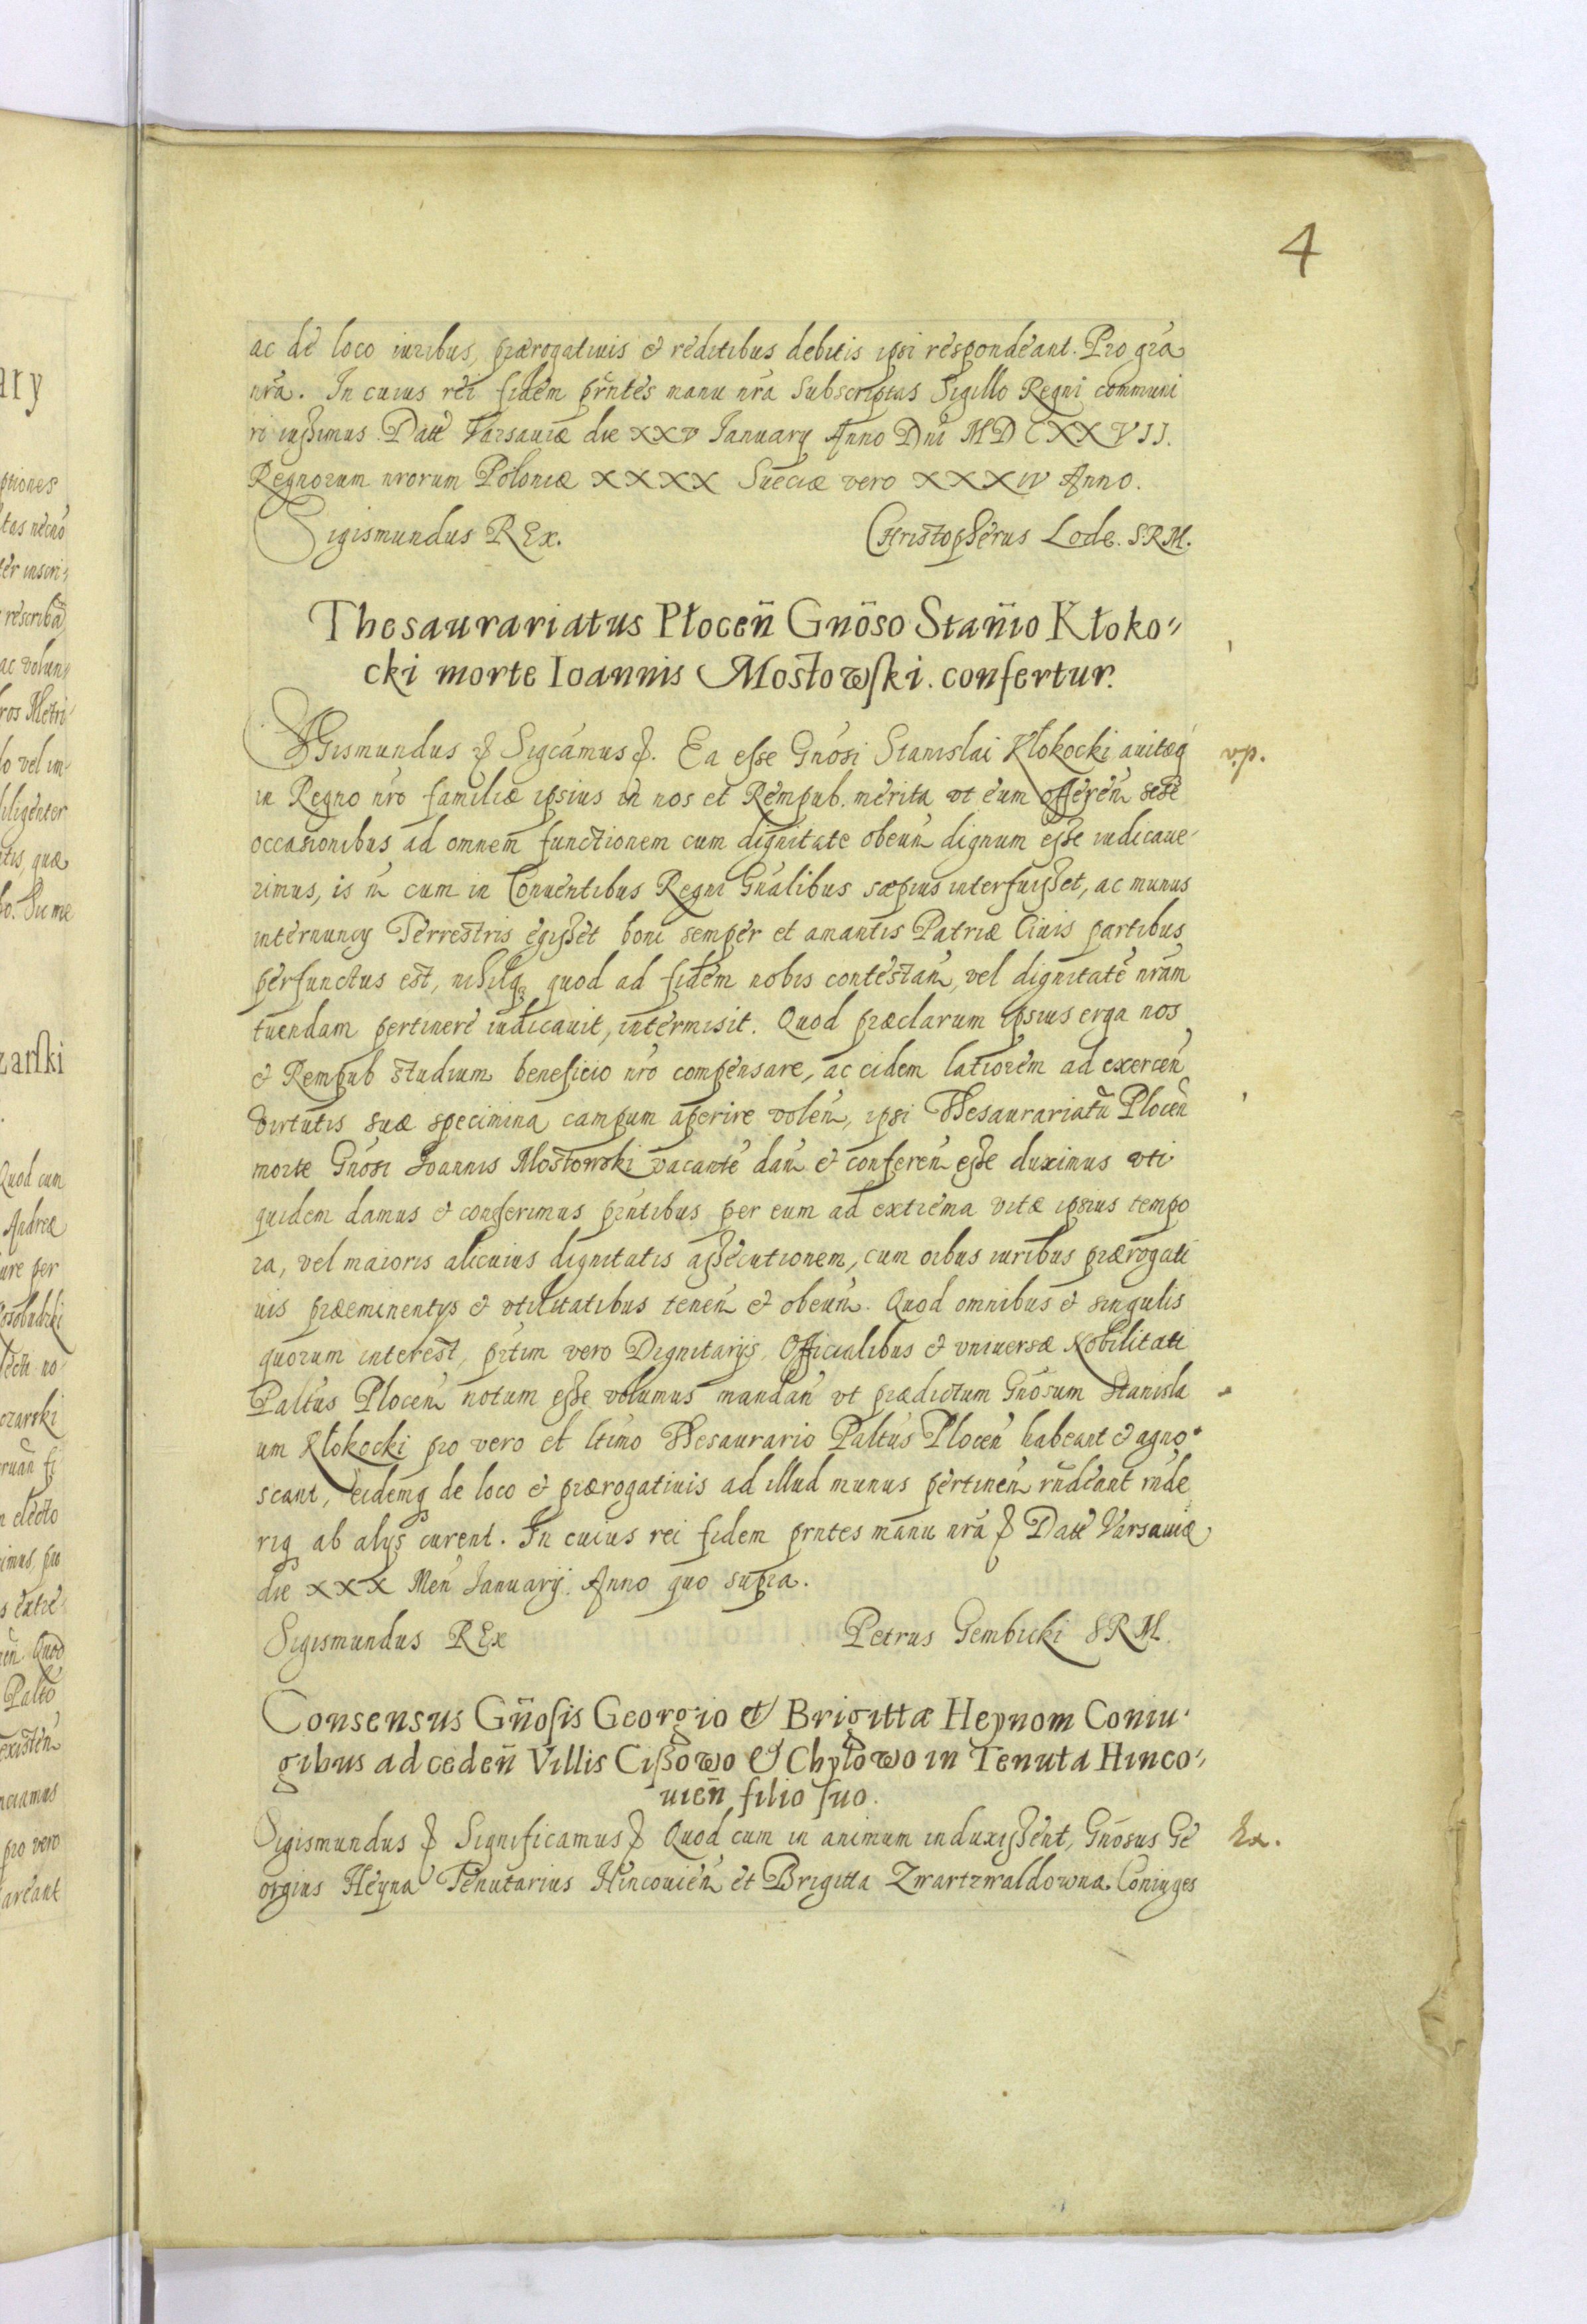 4
ac de loco iuribus, prærogatiuis & reditibus debitis ipsi respondeant. Pro gra
nra. In cuius rei fidem prntes manu nra Subscriptas Sigillo Regni communi
ri iussimus. Datt Varsauiæ die XXV January Anno Dni MDCXXVII.
Regnorum nrorum Poloniæ XXXX Sueciæ vero XXXIV Anno.
Sigismundus REx. Christopherus Lode. SRM.
Thesaurariatus Płoceñ Gnöso Stañio Kłoko〃
cki morte Ioannis Mostowski. confertur.
SIGismundus & Sigcamus &. Ea esse Gnosi Stanislai Kłokocki auitæq
vp.
in Regno nro familiæ ipsius in nos et Rempub. merita vt eum offereñ sese
occasionibus ad omnem functionem cum dignitate obeuñ dignum esse iudicaue-
rimus, is ñ cum in Conuentibus Regni Gnalibus sæpius interfuisset, ac munus
internuncy Terrestris egisset boni semper et amantis Patriæ Ciuis partibus
perfunctus est, nihilq quod ad fidem nobis contestañ, vel dignitatē nram
tuendam pertinere iudicauit, intermisit. Quod præclarum ipsius erga nos
& Rempub studium beneficio nro compensare, ac eidem latiorem ad exerceñ
virtutis suæ specimina campum aperire voleñ, ipsi Thesaurariatū Ploceñ
morte Gnosi Ioannis Mostowski vacantē dañ & confereñ esse duximus vti
quidem damus & conferimus prntibus per eum ad extrema vitæ ipsius tempo
ra, vel maioris alicuius dignitatis assecutionem, cum oibus iuribus prærogati
uis præeminentys & vtilitatibus teneñ & obeuñ. Quod omnibus & singulis
quorum interest, prtim vero Dignitarijs, Officialibus & vniuersæ Nobilitati
Paltus Ploceñ notum esse volumus mandañ vt prædictum Gnosum Stanisla
um Kłokocki pro vero et ltimo Thesaurario Paltus Ploceñ habeant & agno
scant, eidemq de loco & prærogatiuis ad illud munus pertineñ rñdeant rñde
riq ab alys curent. In cuius rei fidem prntes manu nra & Datt Varsauiæ
die XXX Meñ Ianuarij. Anno quo supra.
Sigismundus REx Petrus Gembicki SRM.
Consensus Gñosis Georgio & Brigittæ Heynom Coniu
gibus ad cedeñ Villis Cißowo & Chyłowo in Tenuta Hinco〃
uieñ filio suo.
Sigismundus & Significamus & Quod cum in animum induxissent, Gnosus Ge
Ex.
orgius Heyna Tenutarius Hincouieñ et Brigitta Zwartzwaldowna Coniuges